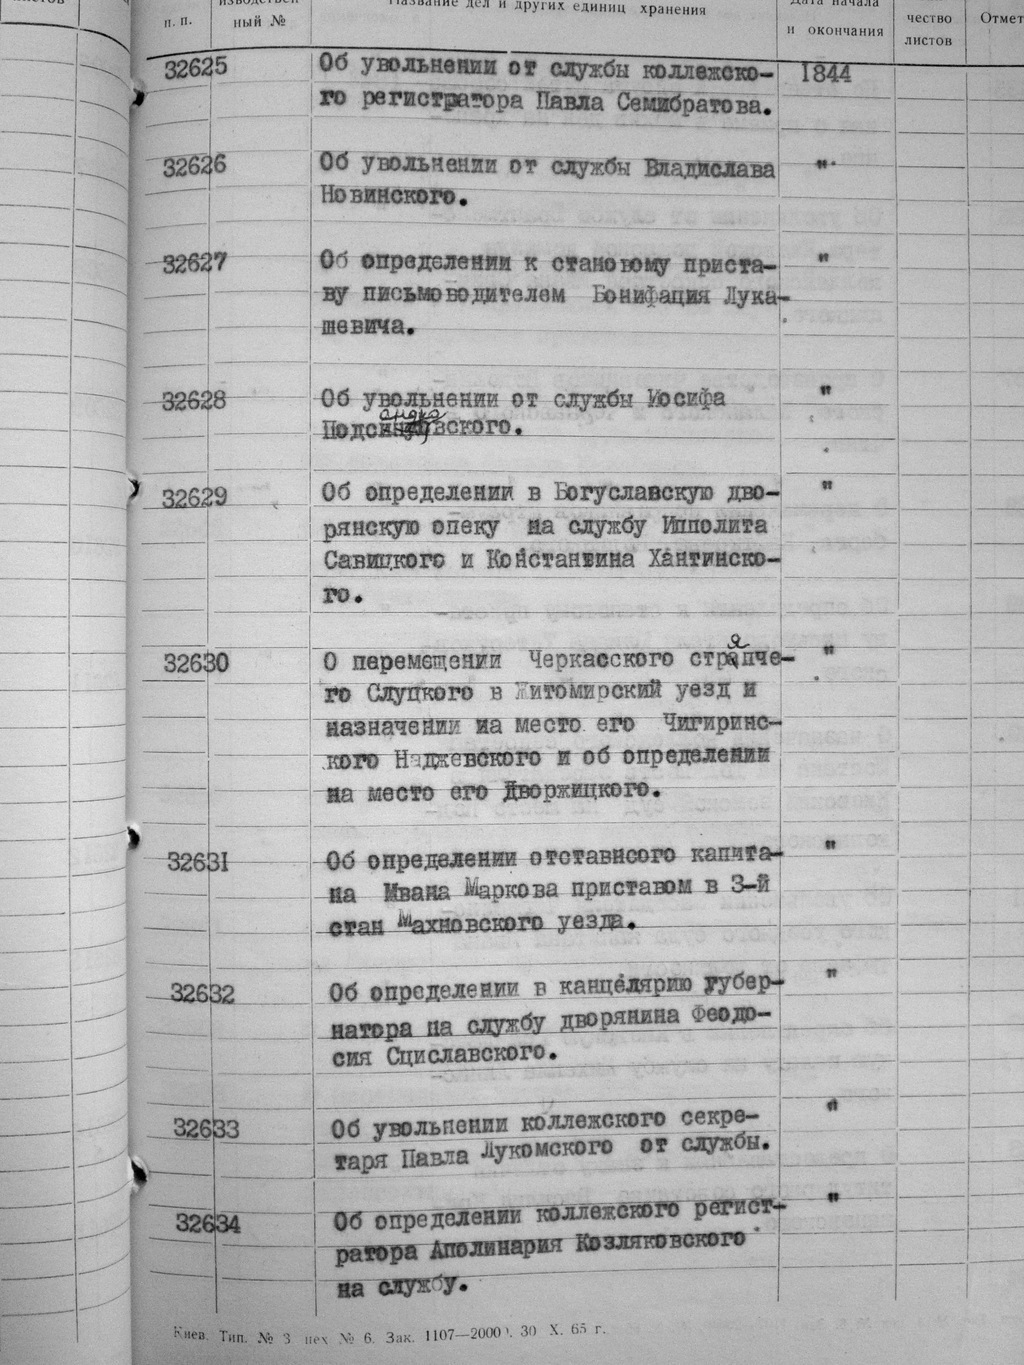 п. п.
ный №
Название дел и других единиц хранения
Дата начала
и окончания
чество
листов
Отмет
32625 Об увольнении от службы коллежско- 1844
го регистратора Павла Семибратова.
32626 Об увольнении от службы Владислава "
Новинского.
32627 Об определении к становому приста- "
ву письмоводителем Бонифация Лука-
шевича.
32628 Об увольнении от службы Иосифа "
вского.
32629 Об определении в Богуславскую дво- "
рянскую опеку на службу Ипполита
Савицкого и Константина Хантинско-
го.
32630 О перемещении Черкасского стряпче- "
го Слуцкого в Житомирский уезд и
назначении на место его Чигиринс-
кого Наджевского и об определении
на место его Дворжицкого.
32631 Об определении отставного капита- "
на Ивана Маркова приставом в 3-й
стан Махновского уезда.
32632 Об определении в канцелярию губер- "
натора на службу дворянина Феодо-
сия Сциславского.
32633 Об увольнении коллежского секре- "
таря Павла Лукомского от службы.
32634 Об определении коллежского регист- "
ратора Аполинария Козляковского
на службу.
Киев. Тип. № 3 цех № 6. Зак. 1107—2000. 30 X. 65 г.